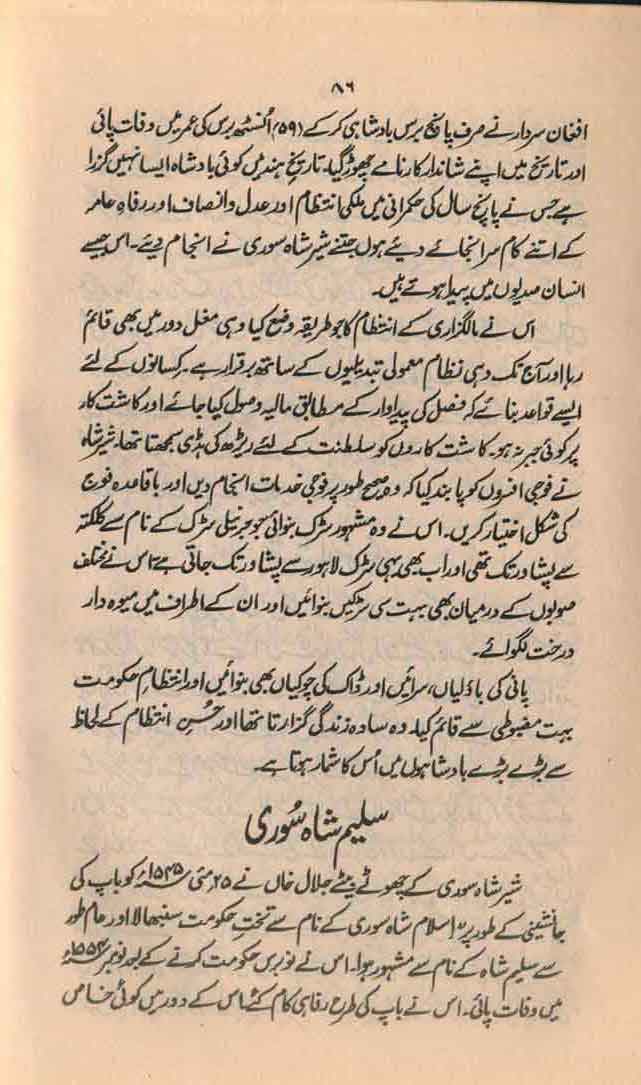 ۸۶
افغان سردار نے صرف پانچ برس بادشاہی کر کے (۵۹) اُنسٹھ برس کی عمر میں وفات پائی
اور تاریخ میں اپنے شاندار کارنامے چھوڑ گیا۔ تاریخِ ہند میں کوئی بادشاہ ایسا نہیں گزرا
ہے جس نے پانچ سال کی حکمرانی میں ملکی انتظام اور عدل و انصاف اور رفاہِ عامہ
کے اتنے کام سرانجائے دیئے ہوں جتنے شیر شاہ سوری نے انجام دیئے۔ اس جیسے
انسان صدیوں میں پیدا ہوتے ہیں۔
اس نے مالگزاری کے انتظام کا جو طریقہ وضع کیا وہی مغل دور میں بھی قائم
رہا اور آج تک وہی نظام معمولی تبدیلیوں کے ساتھ برقرار ہے۔ کسانوں کے لئے
ایسے قواعد بنائے کہ فصل کی پیداوار کے مطابق مالیہ وصول کیا جائے اور کاشت کار
پر کوئی جبر نہ ہو۔ کاشت کاروں کو سلطنت کے لئے ریڑھ کی ہڈی سمجھتا تھا۔ شیر شاہ
نے فوجی افسروں کو پابند کیا کہ وہ صحیح طور پر فوجی خدمات انجام دیں اور باقاعدہ فوج
کی شکل اختیار کریں۔ اس نے وہ مشہور سڑک بنوائی جو جرنیلی سڑک کے نام سے کلکتہ
سے پشاور تک تھی اور اب بھی یہی سڑک لاہور سے پشاور تک جاتی ہے۔ اس نے مختلف
صوبوں کے درمیان بھی بہت سی سڑکیں بنوائیں اور ان کے اطراف میں میوہ دار
درخت لگوائے۔
پانی کی باؤلیاں، سرائیں اور ڈاک کی چوکیاں بھی بنوائیں اور انتظامِ حکومت
بہت مضبوطی سے قائم کیا۔ وہ سادہ زندگی گزارتا تھا اور حُسنِ انتظام کے لحاظ
سے بڑے بڑے بادشاہوں میں اُس کا شمار ہوتا ہے۔
سلیم شاہ سُوری
شیر شاہ سوری کے چھوٹے بیٹے جلال خاں نے ۲۵ مئی ۱۵۴۵ء کو باپ کی
جانشینی کے طور پر اسلام شاہ سوری کے نام سے تختِ حکومت سنبھالا اور عام طور
سے سلیم شاہ کے نام سے مشہور ہوا۔ اس نے نو برس حکومت کرنے کے بعد نومبر ۱۵۵۴ء
میں وفات پائی۔ اس نے باپ کی طرح رفاہی کام کئے اس کے دور میں کوئی خاص